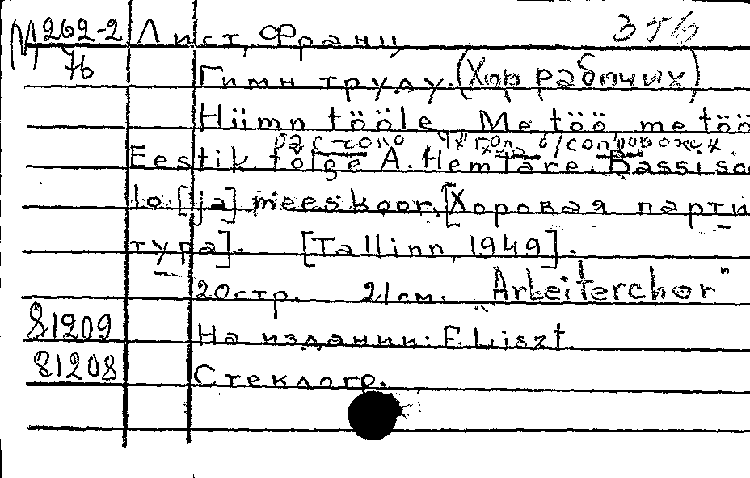 М 262-2 Лист, Франц 376
76 Гимн труду. (Хор рабочих)
Hümn tööle. Me töö, me töö
Eestik tõlge A. Hemtare. Bassi so
lo [ja] meeskoor. [Хоровая парти
тура]. [Tallinn, 1949].
20 стр. 21 см. "Arbeiterchor"
81209 На издании: F. Liszt.
81208 Стеклогр.